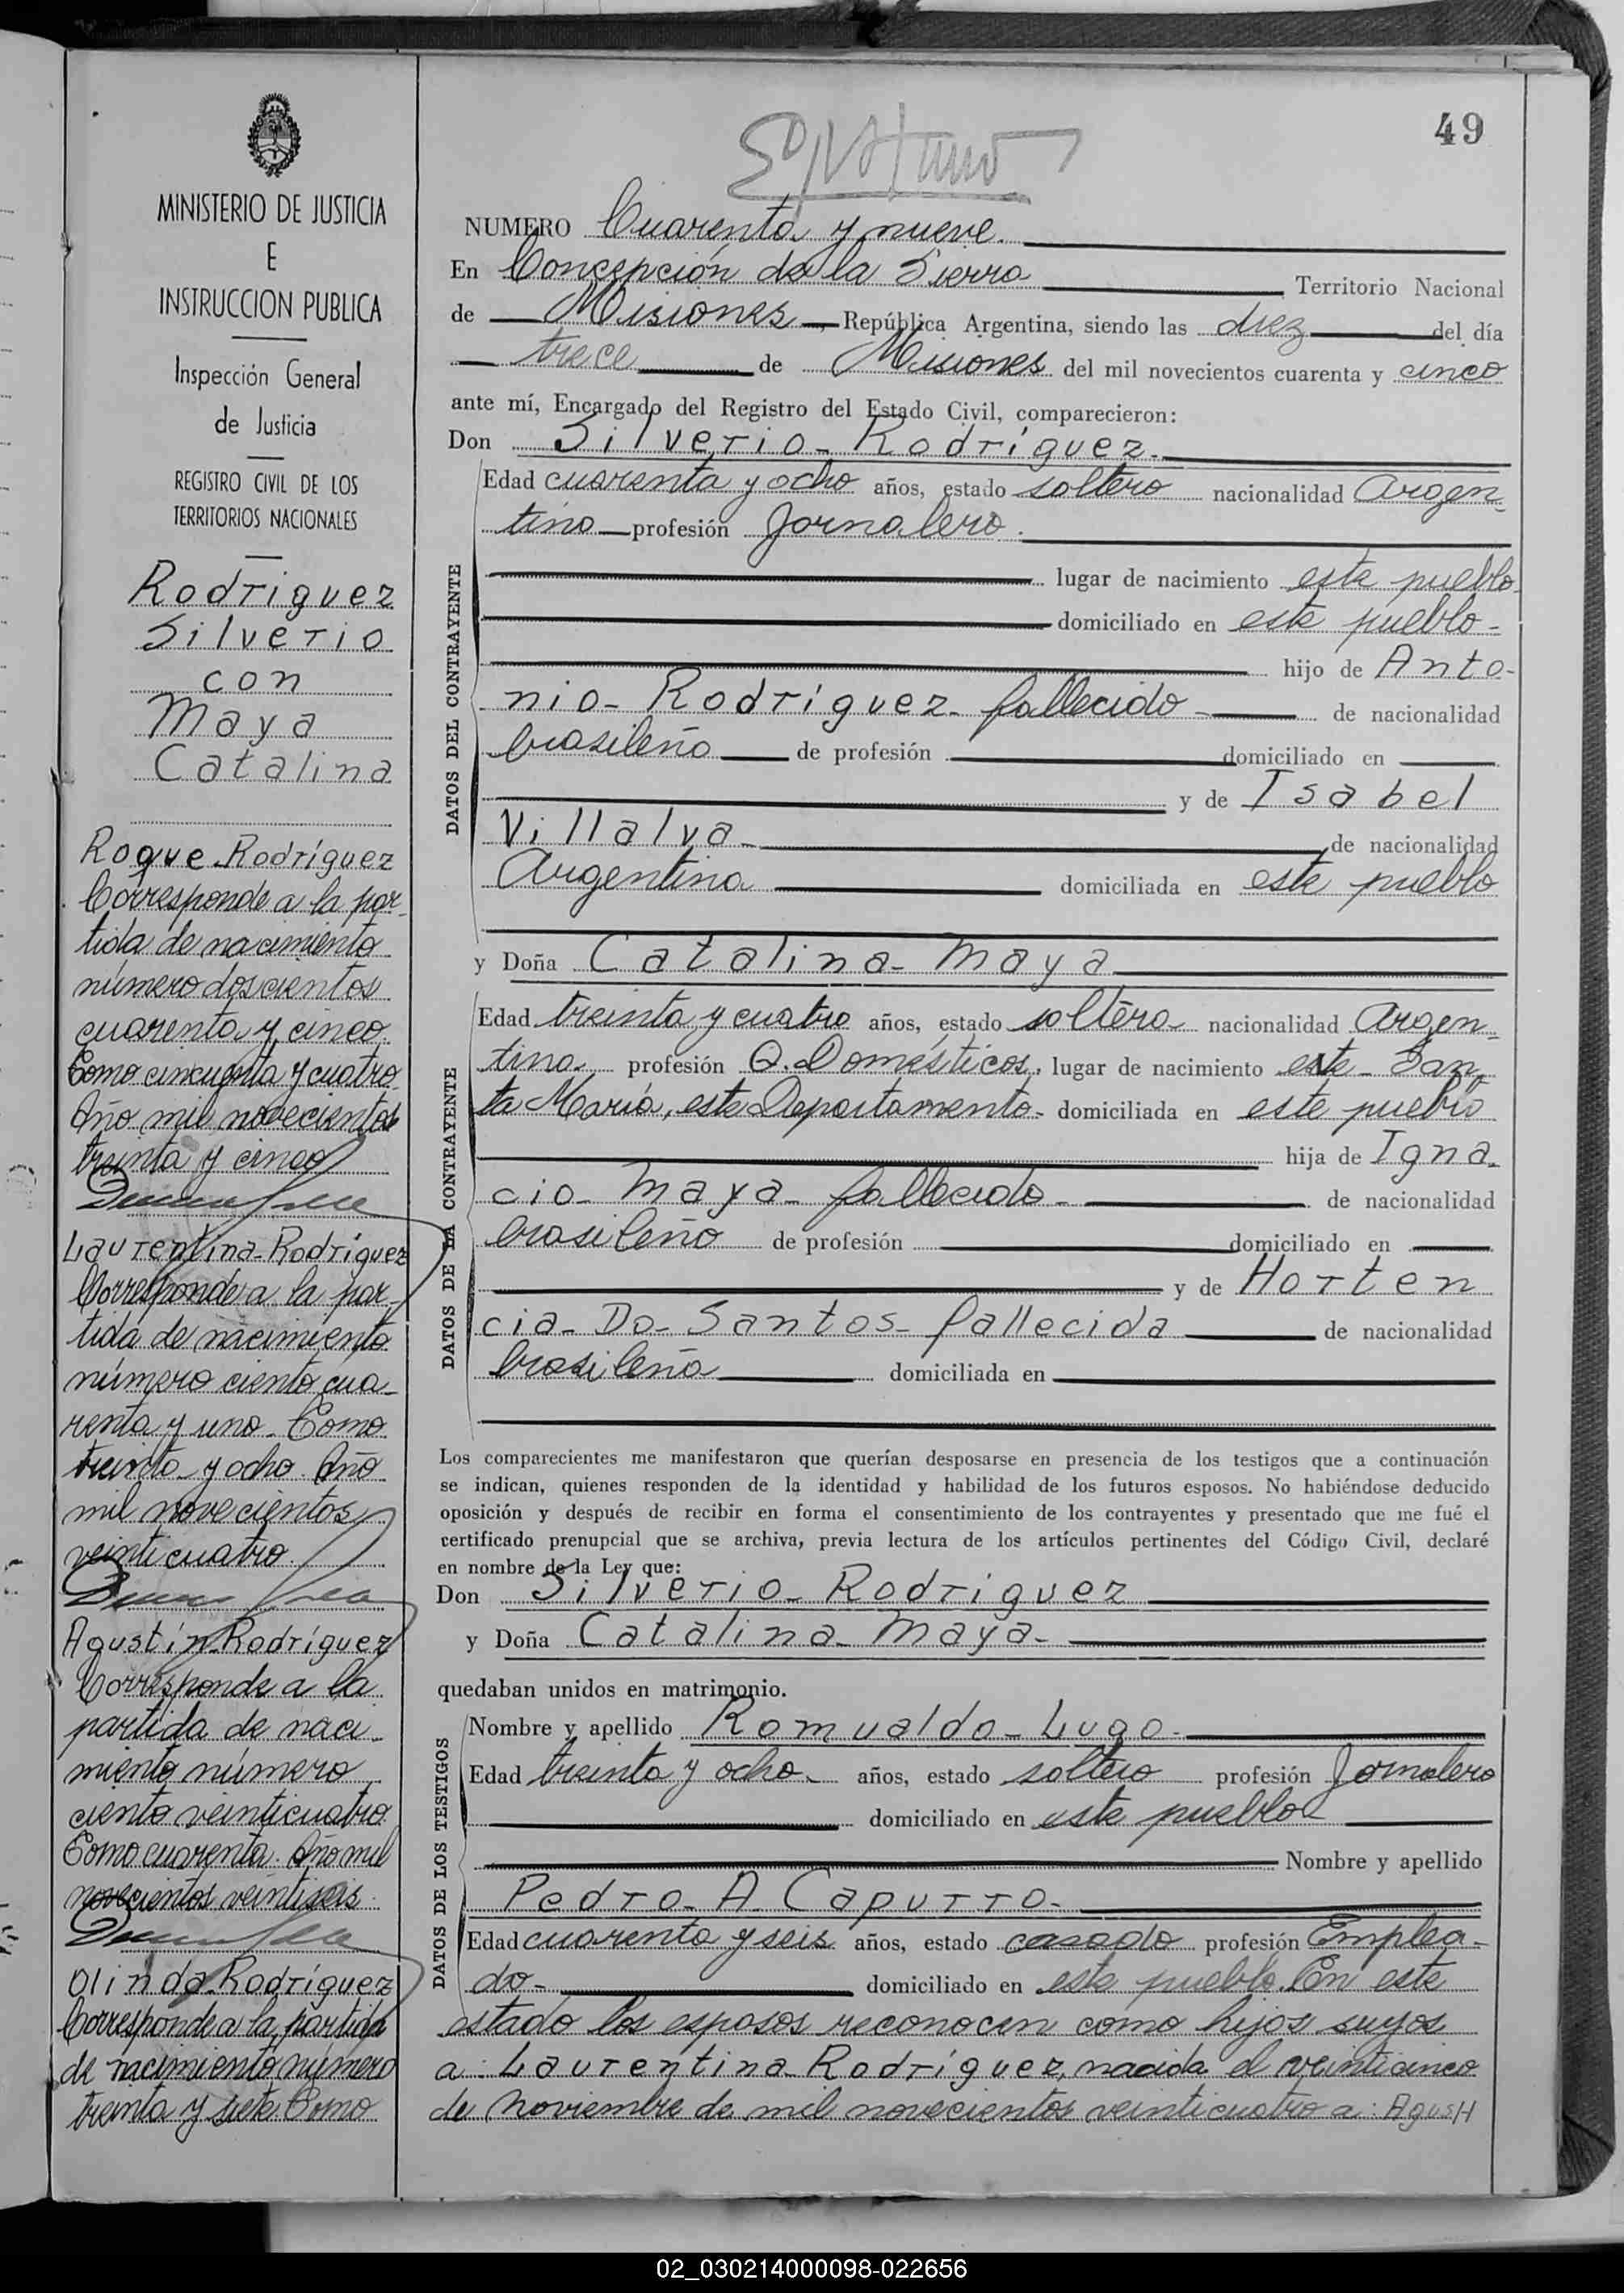 MINISTERIO DE JUSTICIA
E
INSTRUCCION PUBLICA
Inspección General
de Justicia
REGISTRO CIVIL DE LOS
TERRITORIOS NACIONALES
Rodriguez
Silverio
con
Maya
Catalina
Roque Rodríguez
Corresponde a la par-
tida de nacimiento
número doscientos
cuarenta y cinco.
Tomo cincuenta y cuatro.
Año mil novecientos
treinta y cinco
Laurentina Rodríguez
Corresponde a la par-
tida de nacimiento
número ciento cua-
renta y uno. Tomo
treinta y ocho. Año
mil novecientos
veinticuatro.
Agustín Rodríguez
Corresponde a la
partida de naci-
miento número
ciento veinticuatro
Tomo cuarenta. Año mil
novecientos veintiseis.
Olinda Rodríguez
Corresponde a la partida
de nacimiento número
treinta y siete. Tomo
49
NUMERO Cuarenta y nueve.
En Concepción de la Sierra Territorio Nacional
de Misiones, República Argentina, siendo las diez del día
trece de Misiones del mil novecientos cuarenta y cinco
ante mí, Encargado del Registro del Estado Civil, comparecieron:
Don Silverio Rodríguez.
DATOS DEL CONTRAYENTE
Edad cuarenta y ocho años, estado soltero nacionalidad Argen-
tino profesión Jornalero.
lugar de nacimiento este pueblo-
domiciliado en este pueblo-
hijo de Anto-
nio- Rodríguez- fallecido de nacionalidad
brasileño de profesión domiciliado en
y de Isabel
Villalva- de nacionalidad
Argentina domiciliada en este pueblo
y Doña Catalina- Maya
DATOS DE LA CONTRAYENTE
Edad treinta y cuatro años, estado soltera nacionalidad Argen-
tina. profesión Q. Domésticos. lugar de nacimiento este- San-
ta María, este Departamento- domiciliada en este pueblo
hija de Igna-
cio- Maya- fallecido- de nacionalidad
brasileño de profesión domiciliado en
y de Horten
cia- Do- Santos- fallecida de nacionalidad
brasileña domiciliada en
Los comparecientes me manifestaron que querían desposarse en presencia de los testigos que a continuación
se indican, quienes responden de la identidad y habilidad de los futuros esposos. No habiéndose deducido
oposición y después de recibir en forma el consentimiento de los contrayentes y presentado que me fué el
certificado prenupcial que se archiva, previa lectura de los artículos pertinentes del Código Civil, declaré
en nombre de la Ley que:
Don Silverio- Rodríguez
y Doña Catalina- Maya-
quedaban unidos en matrimonio.
DATOS DE LOS TESTIGOS
Nombre y apellido Romualdo- Lugo-
Edad treinta y ocho- años, estado soltero profesión Jornalero
domiciliado en este pueblo
Nombre y apellido
Pedro- A. Capurro-
Edad cuarenta y seis años, estado casado profesión Emplea-
do- domiciliado en este pueblo. En este
estado los esposos reconocen como hijos suyos
a: Laurentina Rodríguez, nacida el veinticinco
de Noviembre de mil novecientos veinticuatro a: Agustí
02_030214000098-022656